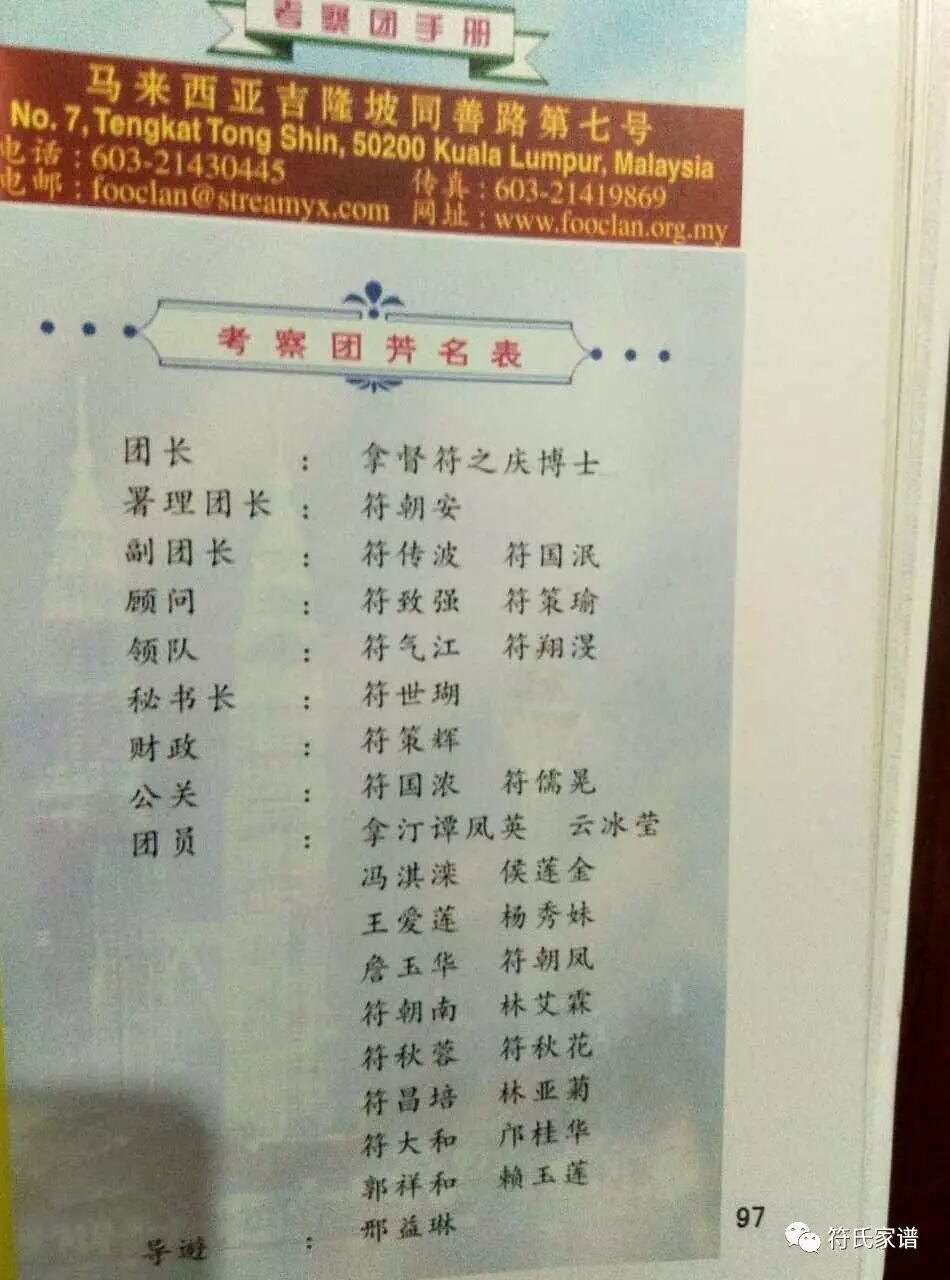 考察团手册
马来西亚吉隆坡同善路第七号
No. 7, Tengkat Tong Shin, 50200 Kuala Lumpur, Malaysia
电话：603-21430445 传真：603-21419869
电邮：fooclan@streamyx.com 网址：www.fooclan.org.my
考察团芳名表
团长 ： 拿督符之庆博士
署理团长 ： 符朝安
副团长 ： 符传波 符国泯
顾问 ： 符致强 符策瑜
领队 ： 符气江 符翔漫
秘书长 ： 符世瑚
财政 ： 符策辉
公关 ： 符国浓 符儒晃
团员 ： 拿汀谭凤英 云冰莹
冯淇滦 侯莲金
王爱莲 杨秀妹
詹玉华 符朝凤
符朝南 林艾霖
符秋蓉 符秋花
符昌培 林亚菊
符大和 邝桂华
郭祥和 赖玉莲
邢益琳
导遊 ：
97
符氏家谱